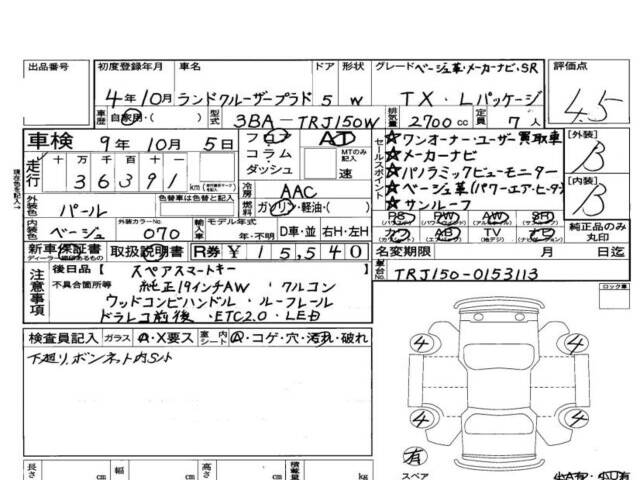 出品番号 初度登録年月 車名 ドア 形状 グレード ベージュ革・メーカーナビ・SR 評価点
4年10月 ランドクルーザープラド 5 W TX・Lパッケージ 4.5
車歴 自家用・( ) 型式 3BA-TRJ150W 排気量 2700 cc 定員 7人
車検 9年 10月 5日 フロア AT セールスポイント ★ワンオーナー・ユーザー買取車 [外装]
走行 十 万 千 百 十 一 コラム MTのみ記入 ★メーカーナビ B
36391 km ダッシュ 速 ★パノラミックビューモニター
外装色 パール 色替車は色替と記入 冷房 AAC ★ベージュ革(パワーエア・ヒータ) [内装]
燃料 ガソリン・軽油・( ) ★サンルーフ B
内装色 ベージュ 外装カラーNo. 070 輸入車 モデル年式 年・不明 D車・並 右H・左H PS PW AW SR
カワ AB TV ナビ 純正品のみ丸印
新車保証書 取扱説明書 R券 ¥15,540 名変期限 月 日迄
ディーラー
注意事項 後日品【 スペアスマートキー 車台No. TRJ150-0153113
不具合箇所等 純正19インチAW ・クルコン ロック車
ウッドコンビハンドル ・ルーフレール
ドラレコ前後 ・ETC2.0 ・LED
検査員記入 ガラス A・X要ス 室内シート Q・コゲ・穴・汚れ・破れ
下廻り、ボンネット内Sサビ
4 4
4 4
有
スペア
長さ cm 幅 cm 高さ cm 積載量 kg